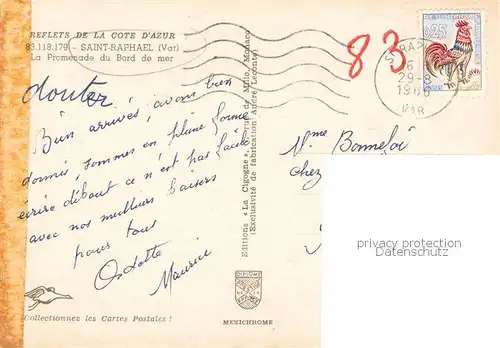 REFLETS DE LA COTE D'AZUR
83.118.179 - SAINT-RAPHAEL (Var)
La Promenade du Bord de mer
Bien arrivés, avons bien
dormis, sommes en pleine forme
écrire debout ce n'est pas facile
avec nos meilleurs baisers
pour tous
Odette
Maurice
Collectionnez les Cartes Postales !
Editions « La Cigogne », Monaco
(Exclusivité de fabrication André Leconte)
DIPLOME
MEXICHROME
83
0,25
29-8
VAR
Mme Bonnefoi
chez
privacy protection
Datenschutz